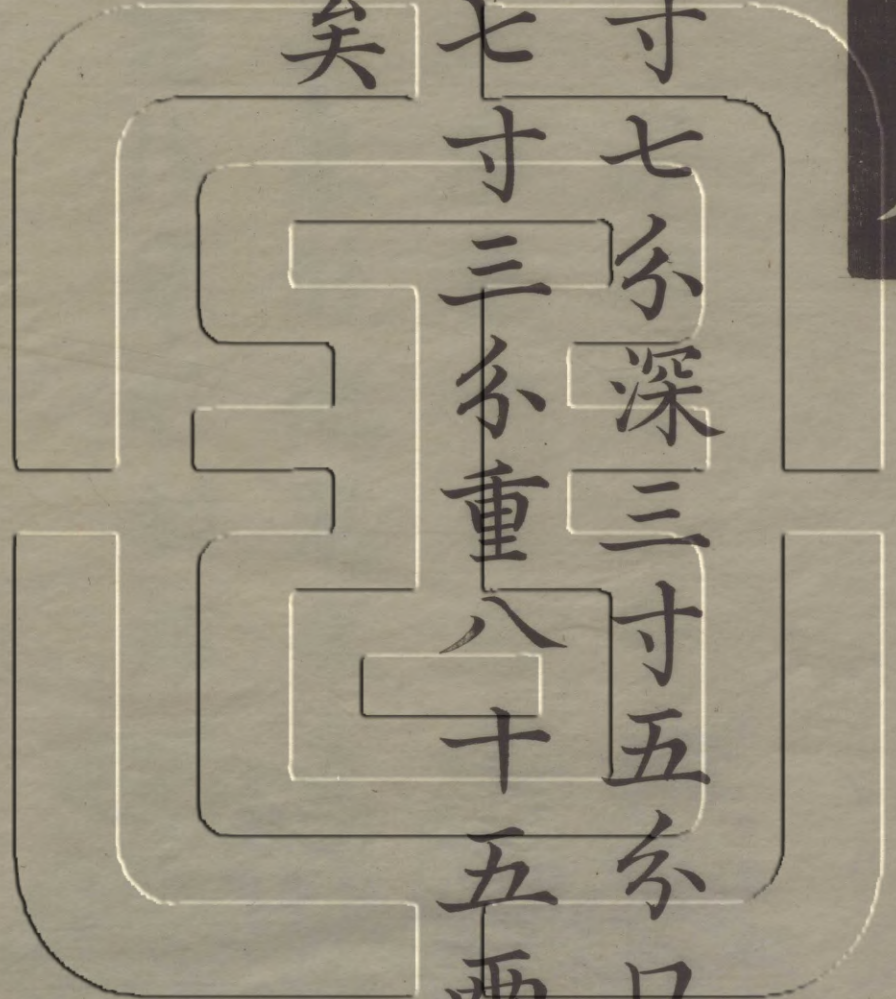 寸七分深三寸五分口
七寸三分重八十五兩
矣